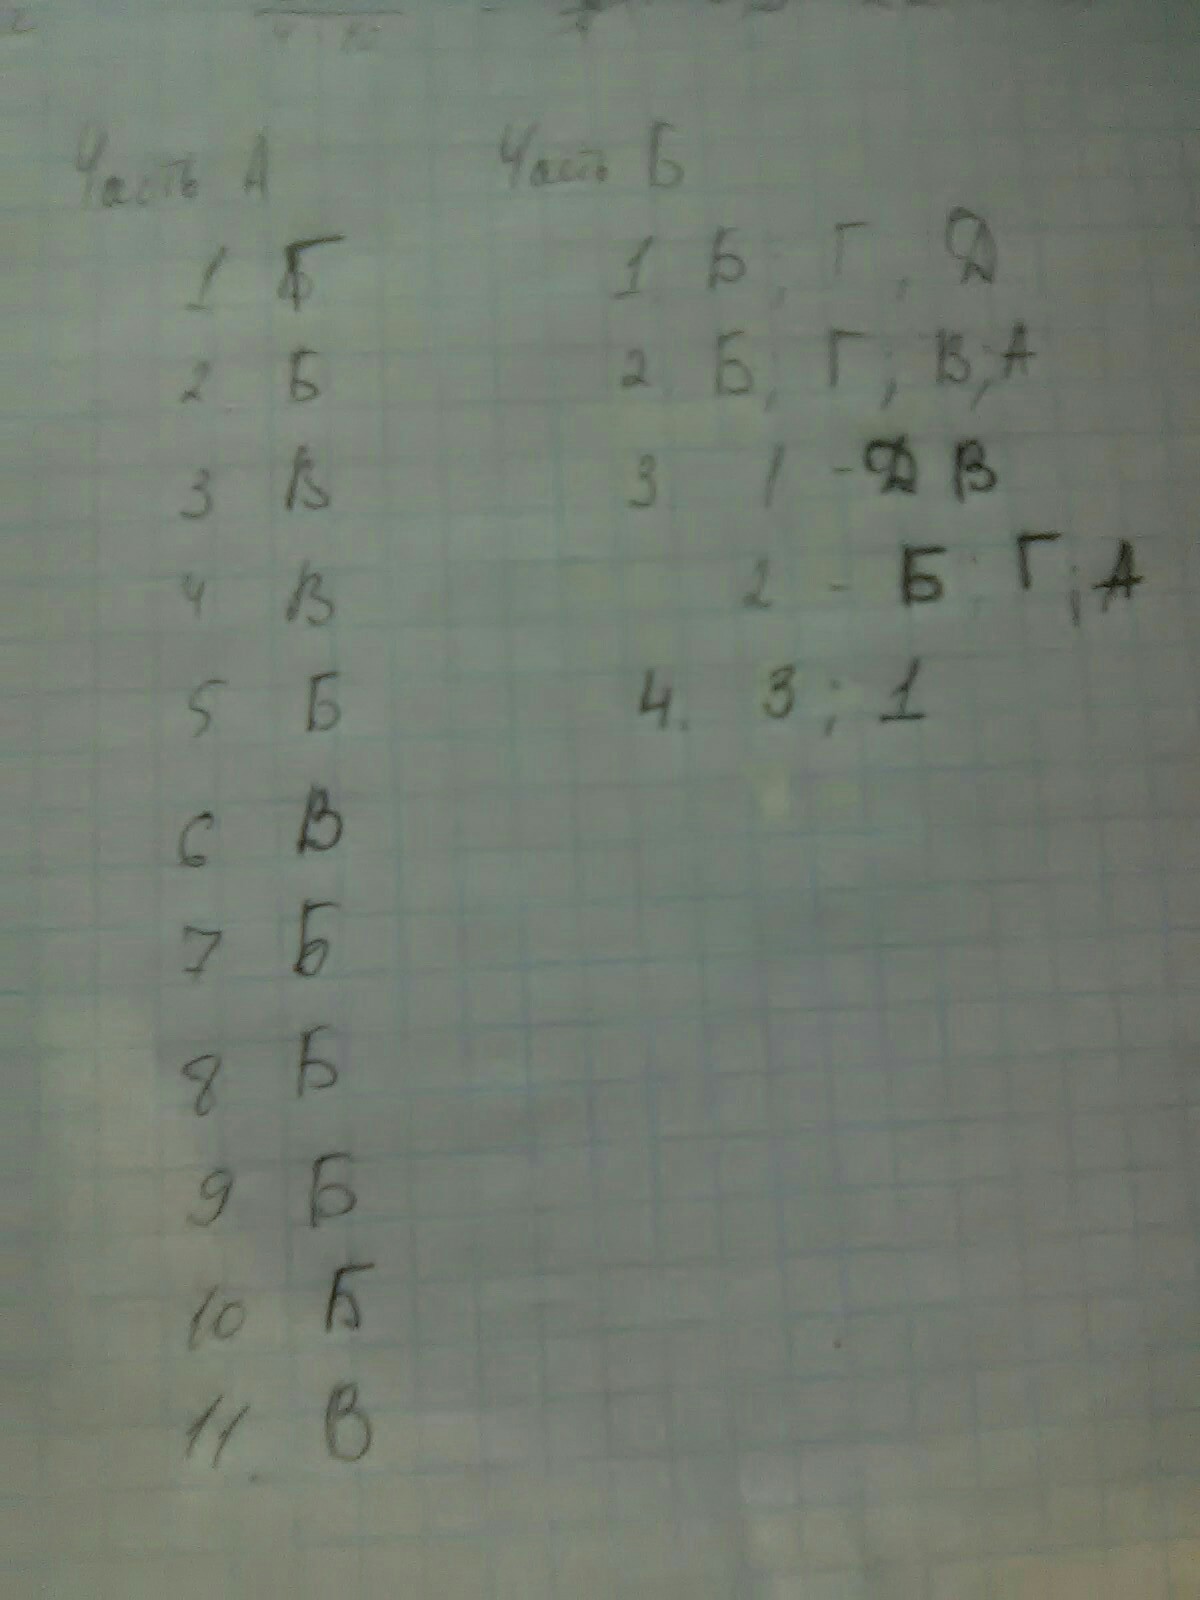 Часть А
1 Г
2 Б
3 В
4 В
5 Б
6 В
7 Б
8 Б
9 Б
10 Б
11. В
Часть Б
1 Б; Г, Д
2 Б; Г; В; А
3 1 - Д В
2 - Б; Г; А
4. 3; 1